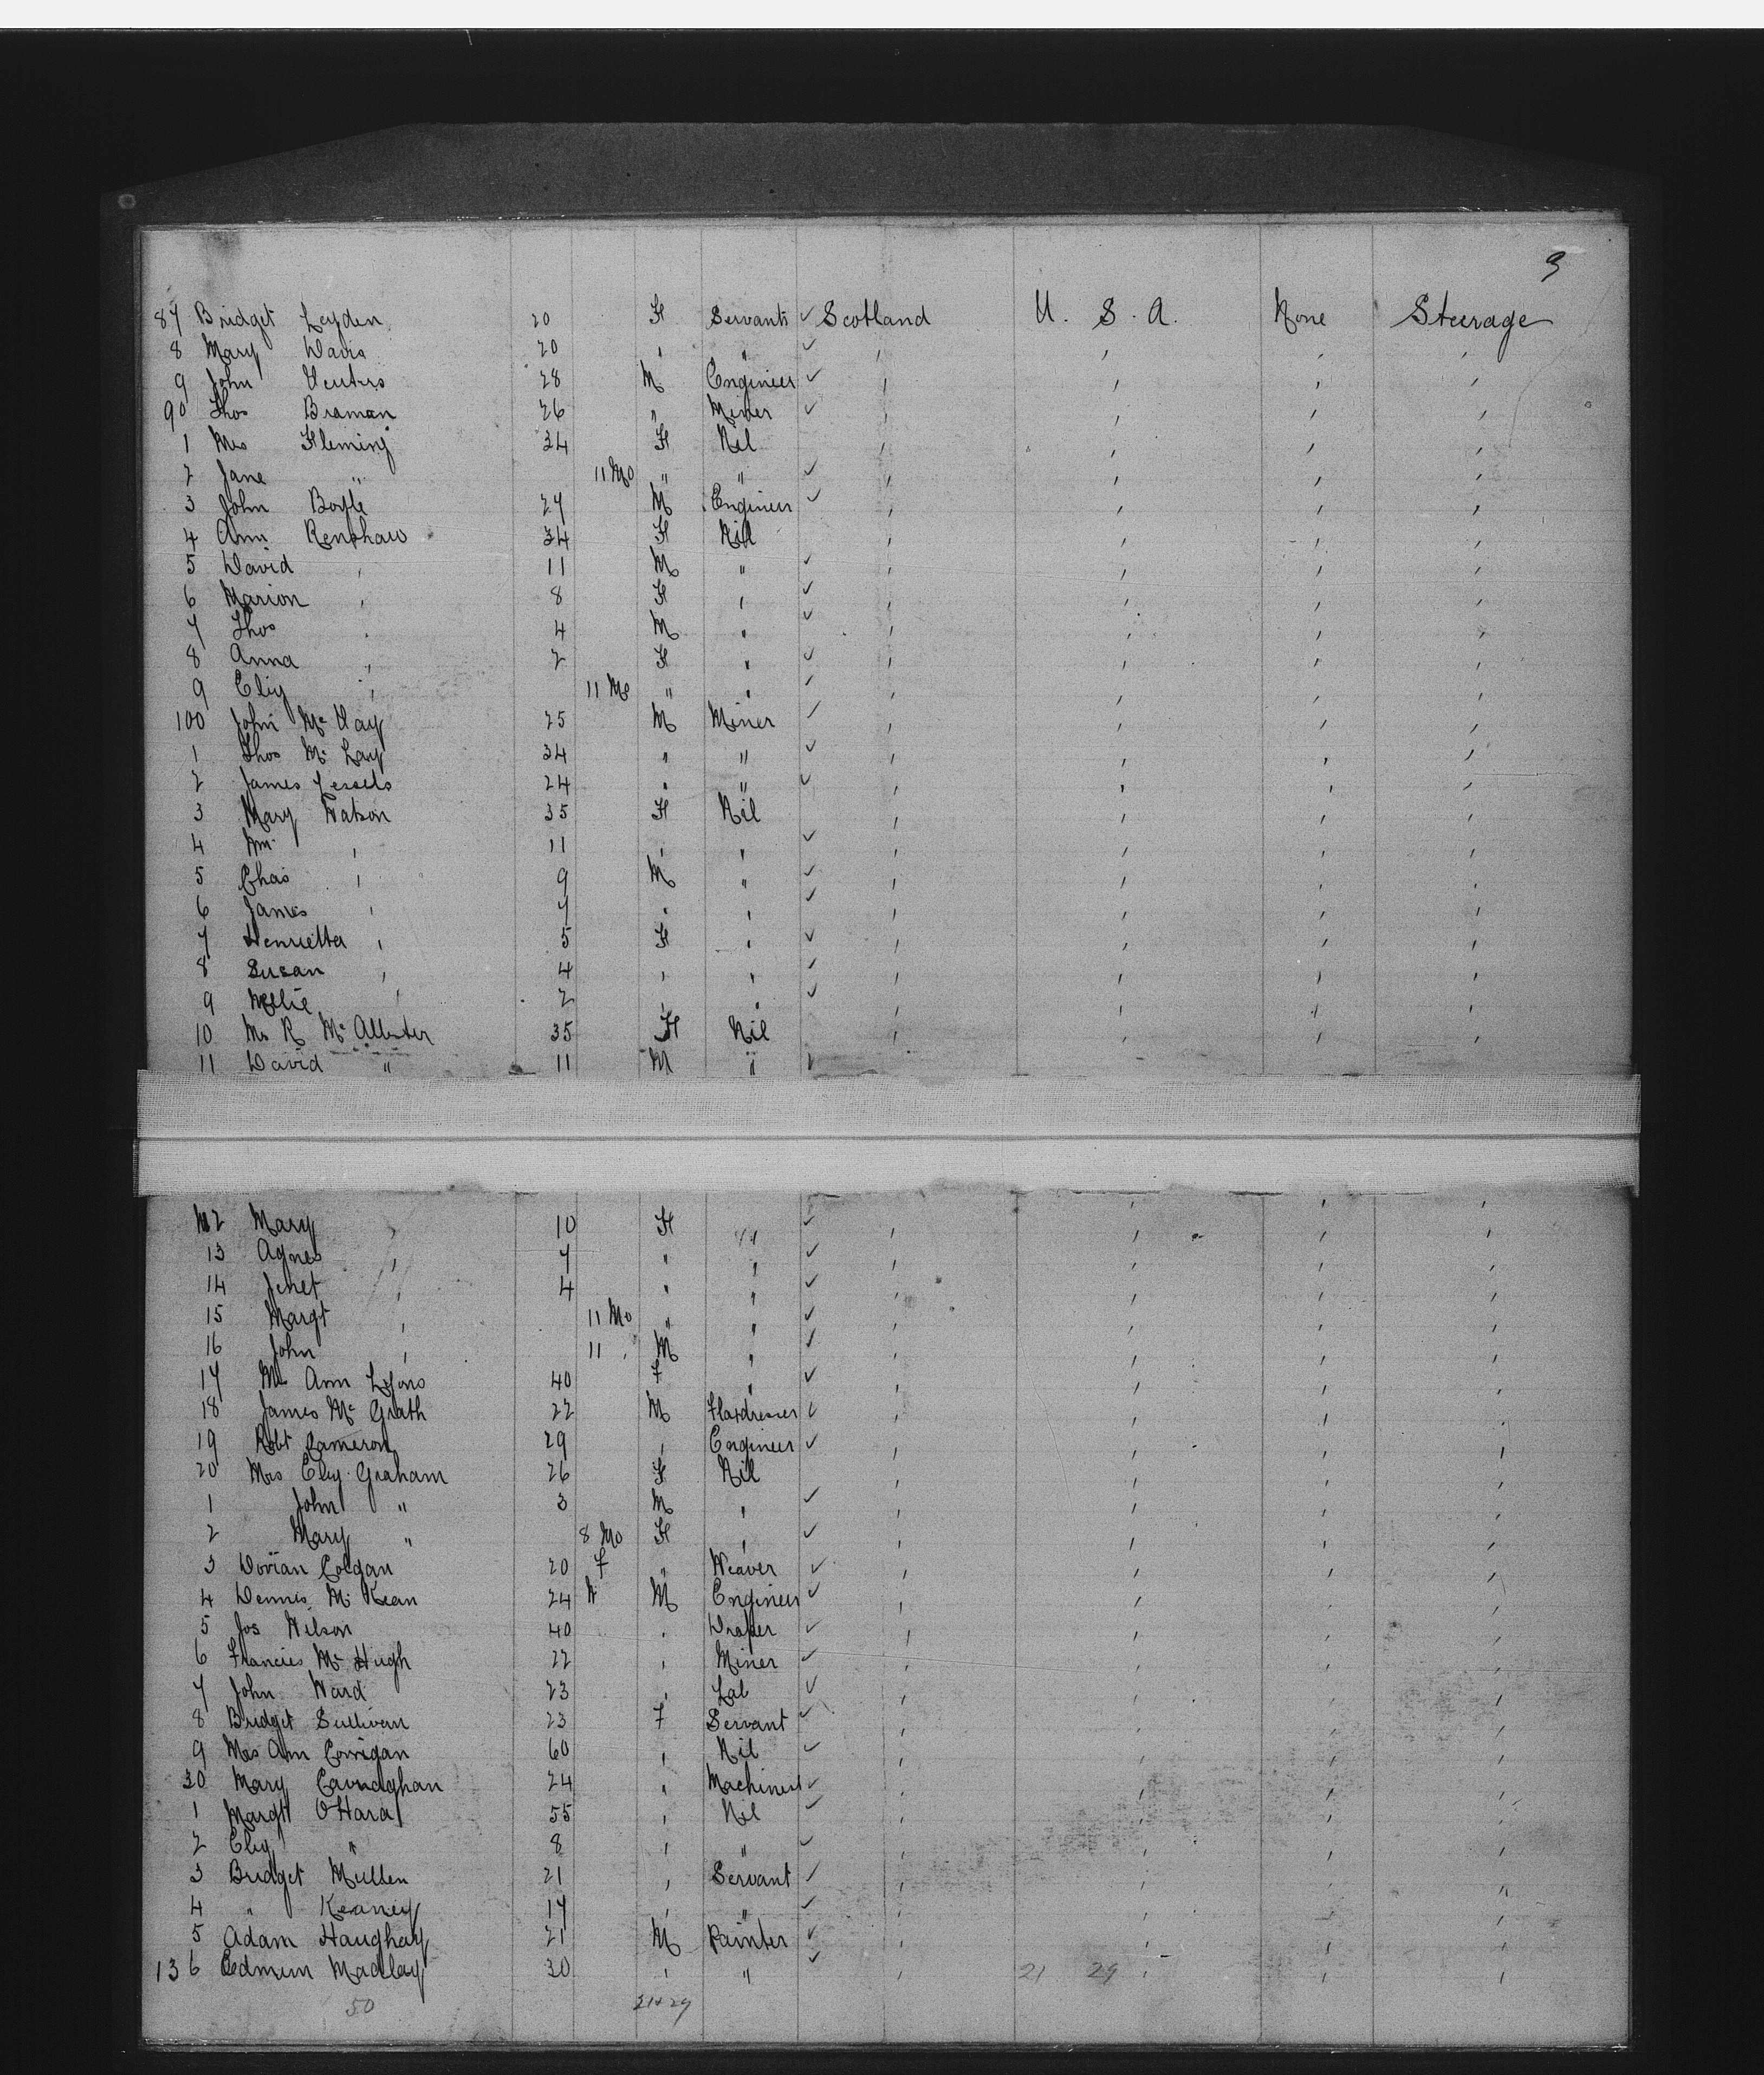 9
87 Bridget Leyden 20 F Servants ✓ Scotland U. S. A. None Steerage
8 Mary Davis 20 " " ✓ " " " "
9 John Venters 28 M Engineer ✓ " " " "
90 Thos Braman 26 " Miner ✓ " " " "
1 Mrs Fleming 34 F Nil " " " "
2 Jane " 11 Mo " " ✓ " " " "
3 John Boyle 27 M Engineer ✓ " " " "
4 Ann Renshaw 34 F Nil " " " "
5 David " 11 M " ✓ " " " "
6 Marion " 8 F " ✓ " " " "
7 Thos " 4 M " ✓ " " " "
8 Anna " 2 F " ✓ " " " "
9 Eliz " 11 Mo " " ✓ " " " "
100 John McVay 25 M Miner ✓ " " " "
1 Thos McLay 34 " " ✓ " " " "
2 James 24 " " ✓ " " " "
3 Mary Watson 35 F Nil " " " "
4 Wm " 11 " " ✓ " " " "
5 Chas " 9 M " ✓ " " " "
6 James " 7 " " ✓ " " " "
7 Henrietta " 5 F " ✓ " " " "
8 Susan " 4 " " ✓ " " " "
9 Nellie " 2 " " ✓ " " " "
10 Mrs R McAllister 35 F Nil " " " "
11 David " 11 M "
112 Mary " 10 F " ✓ " " " "
13 Agnes " 7 " " ✓ " " " "
14 Jenet " 4 " " ✓ " " " "
15 Margt " 11 Mo " " ✓ " " " "
16 John " 11 " M " ✓ " " " "
17 Mrs Ann Lyons 40 F " ✓ " " " "
18 James McGrath 22 M Flaxdresser ✓ " " " "
19 Robt Cameron 29 " Engineer ✓ " " " "
20 Mrs Eliz Graham 26 F Nil " " " "
1 John " 3 M " ✓ " " " "
2 Mary " 8 Mo F " ✓ " " " "
3 Colgan 20 F " Weaver ✓ " " " "
4 Dennis McKean 24 M Engineer ✓ " " " "
5 Jos Wilson 40 " Draper ✓ " " " "
6 Francies McHugh 22 " Miner ✓ " " " "
7 John Ward 23 " Lab ✓ " " " "
8 Bridget Sullivan 23 F Servant ✓ " " " "
9 Mrs Ann Corrigan 60 " Nil ✓ " " " "
30 Mary Cavnaghan 24 " Machinest ✓ " " " "
1 Margt O'Hara 55 " Nil ✓ " " " "
2 Eliz " 8 " " ✓ " " " "
3 Bridget Mullen 21 " Servant ✓ " " " "
4 " Keaney 17 " " ✓ " " " "
5 Adam Haughay 21 M Painter ✓ " " " "
136 Edmun Madlay 30 " " ✓ " 21 29 " " "
50 21+29